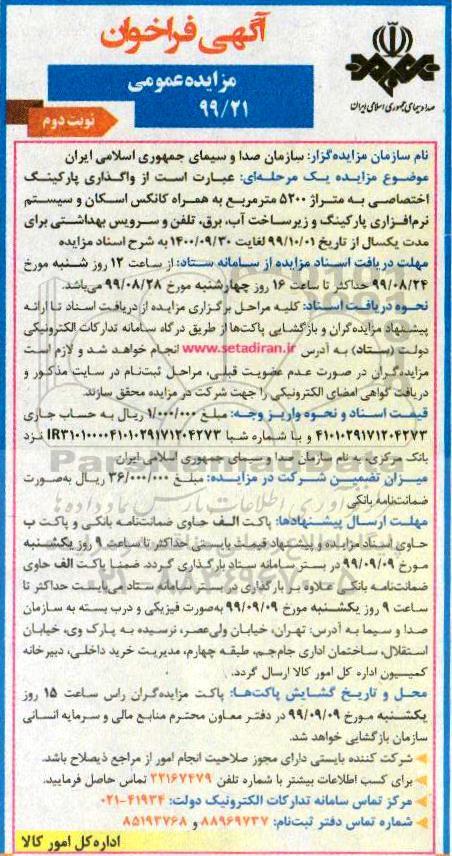 آگهی فراخوان
مزایده عمومی
۹۹/۲۱
نوبت دوم
صدا و سیمای جمهوری اسلامی ایران
نام سازمان مزایده‌گزار: سازمان صدا و سیمای جمهوری اسلامی ایران
موضوع مزایده یک مرحله‌ای: عبارت است از واگذاری پارکینگ
اختصاصی به متراژ ۵۲۰۰ مترمربع به همراه کانکس اسکان و سیستم
نرم‌افزاری پارکینگ و زیرساخت آب، برق، تلفن و سرویس بهداشتی برای
مدت یکسال از تاریخ ۹۹/۱۰/۰۱ لغایت ۱۴۰۰/۰۹/۳۰ به شرح اسناد مزایده
مهلت دریافت اسناد مزایده از سامانه ستاد: از ساعت ۱۲ روز شنبه مورخ
۹۹/۰۸/۲۴ حداکثر تا ساعت ۱۶ روز چهارشنبه مورخ ۹۹/۰۸/۲۸ می‌باشد.
نحوه دریافت اسناد: کلیه مراحل برگزاری مزایده از دریافت اسناد تا ارائه
پیشنهاد مزایده‌گران و بازگشایی پاکت‌ها از طریق درگاه سامانه تدارکات الکترونیکی
دولت (ستاد) به آدرس www.setadiran.ir انجام خواهد شد و لازم است
مزایده‌گران در صورت عدم عضویت قبلی، مراحل ثبت‌نام در سایت مذکور و
دریافت گواهی امضای الکترونیکی را جهت شرکت در مزایده محقق سازند.
قیمت اسناد و نحوه واریز وجه: مبلغ ۱/۰۰۰/۰۰۰ ریال به حساب جاری
۴۱۰۱۰۲۹۱۷۱۲۰۴۲۷۳ و با شماره شبا IR۳۱۰۱۰۰۰۰۴۱۰۱۰۲۹۱۷۱۲۰۴۲۷۳ نزد
بانک مرکزی، به نام سازمان صدا و سیمای جمهوری اسلامی ایران
میزان تضمین شرکت در مزایده: مبلغ ۳۶/۰۰۰/۰۰۰ ریال به‌صورت
ضمانت‌نامه بانکی
مهلت ارسال پیشنهادها: پاکت الف حاوی ضمانت‌نامه بانکی و پاکت ب
حاوی اسناد مزایده و پیشنهاد قیمت بایستی حداکثر تا ساعت ۹ روز یکشنبه
مورخ ۹۹/۰۹/۰۹ در بستر سامانه ستاد بارگذاری گردد. ضمنا پاکت الف حاوی
ضمانت‌نامه بانکی علاوه بر بارگذاری در بستر سامانه ستاد می‌بایست حداکثر تا
ساعت ۹ روز یکشنبه مورخ ۹۹/۰۹/۰۹ به‌صورت فیزیکی و درب بسته به سازمان
صدا و سیما به آدرس: تهران، خیابان ولی‌عصر، نرسیده به پارک وی، خیابان
استقلال، ساختمان اداری جام‌جم، طبقه چهارم، مدیریت خرید داخلی، دبیرخانه
کمیسیون اداره کل امور کالا ارسال گردد.
محل و تاریخ گشایش پاکت‌ها: پاکت مزایده‌گران راس ساعت ۱۵ روز
یکشنبه مورخ ۹۹/۰۹/۰۹ در دفتر معاون محترم منابع مالی و سرمایه انسانی
سازمان بازگشایی خواهد شد.
شرکت کننده بایستی دارای مجوز صلاحیت انجام امور از مراجع ذیصلاح باشد.
برای کسب اطلاعات بیشتر با شماره تلفن ۲۲۱۶۷۴۷۹ تماس حاصل فرمایید.
مرکز تماس سامانه تدارکات الکترونیک دولت: ۴۱۹۳۴-۰۲۱
شماره تماس دفتر ثبت‌نام: ۸۸۹۶۹۷۳۷ و ۸۵۱۹۳۷۶۸
اداره کل امور کالا
ParsNamadData
۰۲۱-۸۸۳۴۹۶۷۰-۵